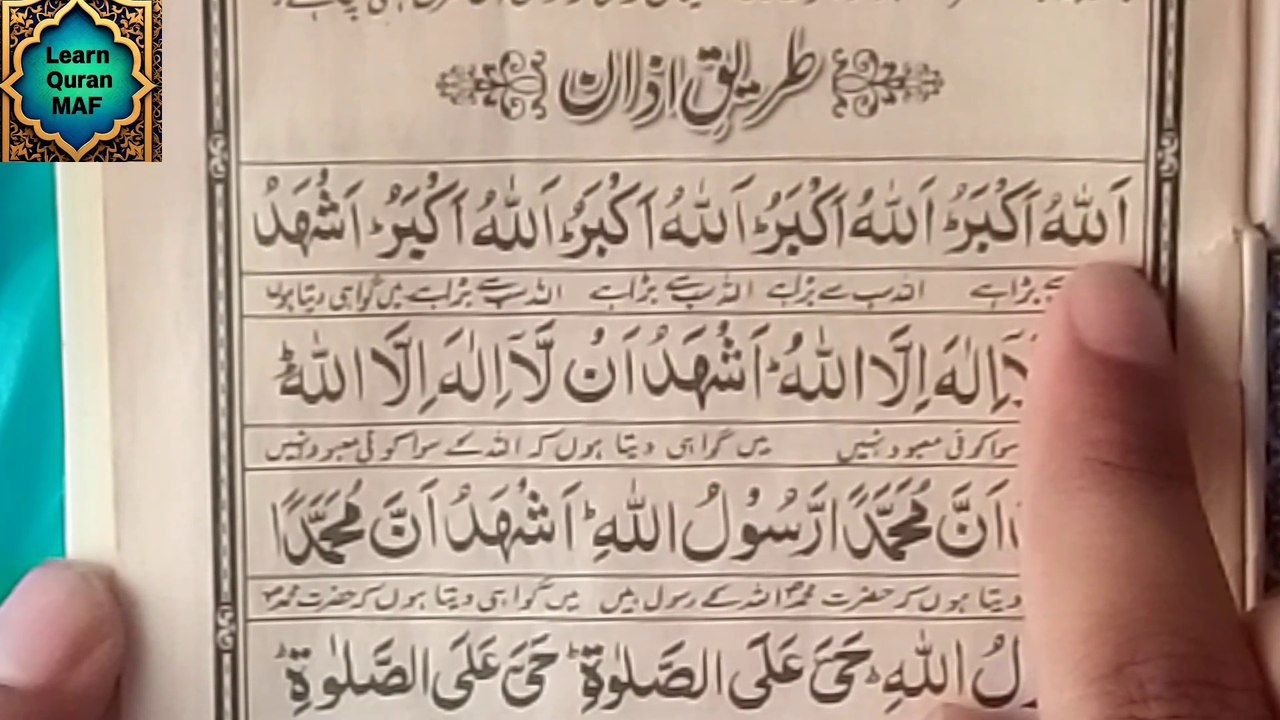 Learn
Quran
MAF
طریقِ اذان
اَللّٰهُ اَكْبَرُ ؕ اَللّٰهُ اَكْبَرُ ؕ اَللّٰهُ اَكْبَرُ ؕ اَللّٰهُ اَكْبَرُ ؕ اَشْهَدُ
بڑا ہے اللہ سب سے بڑا ہے اللہ سب سے بڑا ہے اللہ سب سے بڑا ہے میں گواہی دیتا ہوں
لَاۤ اِلٰهَ اِلَّا اللّٰهُ ؕ اَشْهَدُ اَنْ لَّاۤ اِلٰهَ اِلَّا اللّٰهُ ؕ
سوا کوئی معبود نہیں میں گواہی دیتا ہوں کہ اللہ کے سوا کوئی معبود نہیں
اَنَّ مُحَمَّدًا رَّسُوْلُ اللّٰهِ ؕ اَشْهَدُ اَنَّ مُحَمَّدًا
دیتا ہوں کہ حضرت محمدؐ اللہ کے رسول ہیں میں گواہی دیتا ہوں کہ حضرت محمدؐ
اللّٰهِ ؕ حَیَّ عَلَی الصَّلٰوةِ ؕ حَیَّ عَلَی الصَّلٰوةِ ؕ